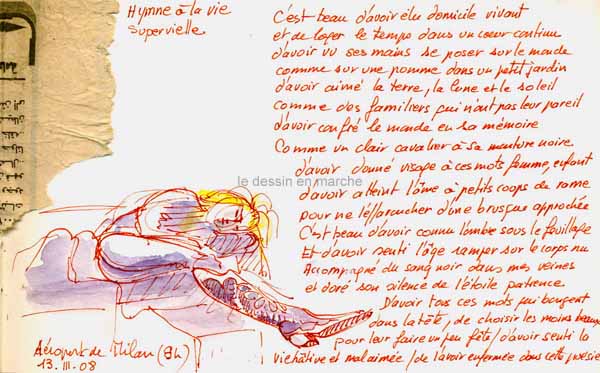 Hymne à la vie
Supervielle
C'est beau d'avoir élu domicile vivant
et de loger le temps dans un coeur continu
d'avoir vu ses mains se poser sur le monde
comme sur une pomme dans un petit jardin
d'avoir aimé la terre, la lune et le soleil
comme des familiers qui n'ont pas leur pareil
d'avoir confié le monde en sa mémoire
Comme un clair cavalier à sa monture noire
d'avoir donné visage à ces mots femme, enfant
le dessin en marche
d'avoir atteint l'âme à petits coups de rame
pour ne l'effaroucher d'une brusque approchée
C'est beau d'avoir connu l'ombre sous le feuillage
Et d'avoir senti l'âge ramper sur le corps nu
Accompagné du sang noir dans mes veines
et doré son silence de l'étoile patience
D'avoir tous ces mots qui bougent
dans la tête, de choisir les moins beaux
pour leur faire un peu fête / d'avoir senti la
vie hâtive et mal aimée / de l'avoir enfermée dans cette poésie
Aéroport de Milan (9h)
13.III.08